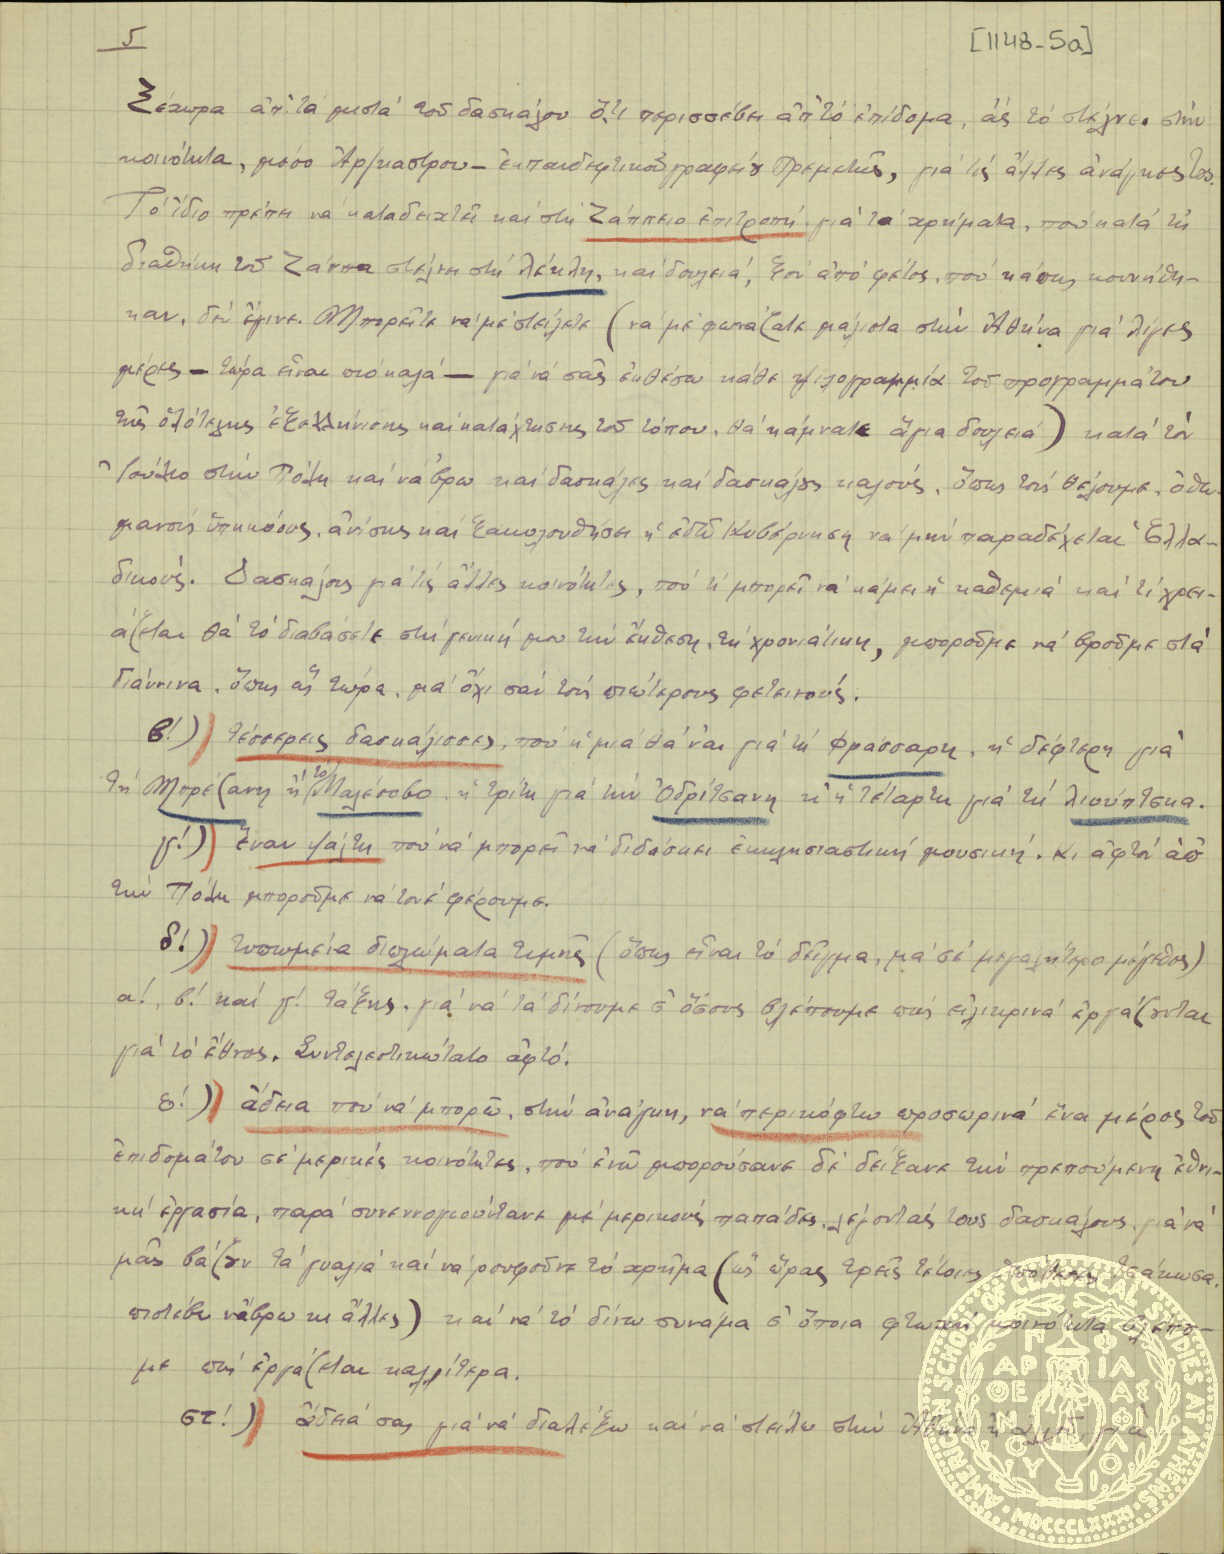 5
[1148-5α]
Ξέχωρα ἀπ' τὰ μιστὰ τοῦ δασκάλου ὅ,τι περισσέβει ἀπ' τὸ ἐπίδομα, ἂς τὸ στέλνει στὴν
κοινότητα, μέσο Ἀργκαστρου – ἐκπαιδεφτικοῦ γραφείου Πρεμετῆς, γιὰ τὶς ἄλλες ἀνάγκες της.
Τὸ ἴδιο πρέπει νὰ καταδειχτεῖ καὶ στὴ Ζάππειο ἐπιτροπὴ γιὰ τὰ χρήματα, ποὺ κατὰ τὴ
διαθήκη τοῦ Ζάππα στέλνει στὴ Λέκλη, καὶ δουλειά, ξὸν ἀπὸ φέτος, ποὺ κάπως κουνήθη-
καν, δὲν ἔγινε. Μπορεῖτε νὰ μὲ στείλετε (νὰ μὲ φωνάζατε μάλιστα στὴν Ἀθήνα γιὰ λίγες
μέρες – τώρα εἶναι πιὸ καλὰ – γιὰ νὰ σᾶς ἐκθέσω κάθε ψιλογραμμία τοῦ προγραμμάτου
τῆς ὁλότελης ἐξελλήνισης καὶ κατάχτησης τοῦ τόπου, θὰ κάμνατε ἅγια δουλειά) κατὰ τὸν
Ἰούλιο στὴν Πόλη καὶ νὰ βρῶ καὶ δασκάλες καὶ δασκάλους καλούς, ὅπως τοὺς θέλουμε, ὀθω-
μανοὺς ὑπηκόους, ἀνίσως καὶ ξακολουθήσει ἡ ἐδῶ Κυβέρνηση νὰ μὴν παραδέχεται Ἑλλα-
δικούς. Δασκάλους γιὰ τὶς ἄλλες κοινότητες, ποὺ τί μπορεῖ νὰ κάμει ἡ καθεμιὰ καὶ τί χρει-
άζεται θὰ τὸ διαβάσετε στὴ γενική μου τὴν ἔκθεση, τὴ χρονιάτικη, μποροῦμε νὰ βροῦμε στὰ
Γιάννινα, ὅπως ὣς τώρα, μὰ ὄχι σὰν τοὺς πιώτερους φετεινούς.
β!) τέσσερεις δασκάλισσες, ποὺ ἡ μιὰ θά ναι γιὰ τὴ Φράσσαρη, ἡ δέφτερη γιὰ
τὴ Μπρέζανη ἢ τὸ Μαλέσοβο, ἡ τρίτη γιὰ τὴν Ὀδρίτσανη κ' ἡ τέταρτη γιὰ τὴ Λιούπτσκα.
γ!) ἕναν ψάλτη ποὺ νὰ μπορεῖ νὰ διδάσκει ἐκκλησιαστικὴ μουσική. Κι ἀφτὸν ἀπ'
τὴν Πόλη μποροῦμε νὰ τονὲ φέρουμε.
δ!) τυπωμένα διπλώματα τιμῆς (ὅπως εἶναι τὸ δεῖγμα, μὰ σὲ μεγαλήτερο μέγεθος)
α!, β! καὶ γ! τάξης, γιὰ νὰ τὰ δίνουμε σ' ὅσους βλέπουμε πὼς εἰλικρινὰ ἐργάζονται
γιὰ τὸ ἔθνος. Συντελεστικώτατο ἀφτό.
ε!) ἄδεια ποὺ νὰ μπορῶ, στὴν ἀνάγκη, νὰ περικόφτω προσωρινὰ ἕνα μέρος τοῦ
ἐπιδομάτου σὲ μερικὲς κοινότητες, ποὺ ἐνῶ μπορούσανε δὲ δείξανε τὴν πρεπούμενη ἐθνι-
κὴ ἐργασία, παρὰ συνεννογιούντανε μὲ μερικοὺς παπάδες, λέγοντάς τους δασκάλους, γιὰ νὰ
μᾶς βάζουν τὰ γυαλιὰ καὶ νὰ ρουφοῦνε τὸ χρῆμα (ὣς ὥρας τρεῖς τέτοιες ὑπόθεσες τσάκωσα,
πιστέβω νἄβρω κι ἄλλες) καὶ νὰ τὸ δίνω συνάμα σ' ὅποια φτωχὴ κοινότητα βλέπου-
με πὼς ἐργάζεται καλλίτερα.
στ!) ἄδειά σας γιὰ νὰ διαλέξω καὶ νὰ στείλω στὴν Ἀθήνα
AMERICAN SCHOOL OF CLASSICAL STUDIES AT ATHENS
MDCCCLXXXI